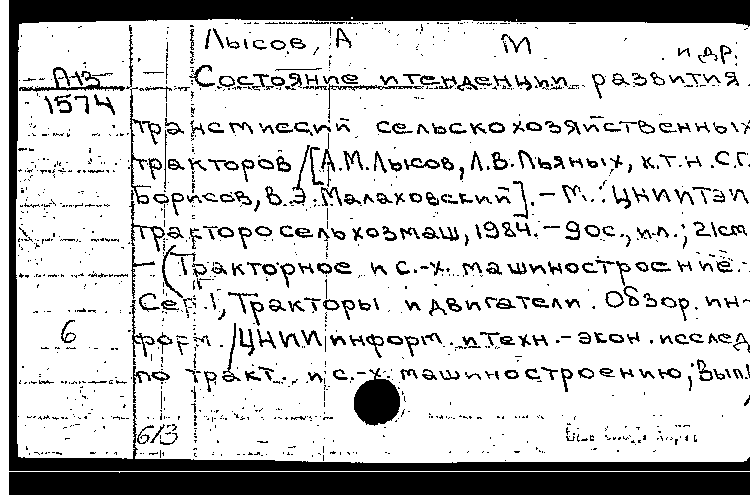 Лысов, А М и др.
П13
1574
Состояние и тенденции развития
трансмиссий сельскохозяйственных
тракторов / [А.М.Лысов, Л.В.Пьяных, к.т.н. С.Г.
Борисов, В.Э.Малаховский]. – М.: ЦНИИТЭИ
тракторосельхозмаш, 1984. – 90с., ил.; 21см
– (Тракторное и с.-х. машиностроение.
Сер. 1, Тракторы и двигатели. Обзор. ин-
6
форм. / ЦНИИ информ. и техн.-экон. исслед
по тракт. и с.-х. машиностроению; Вып.
б/з